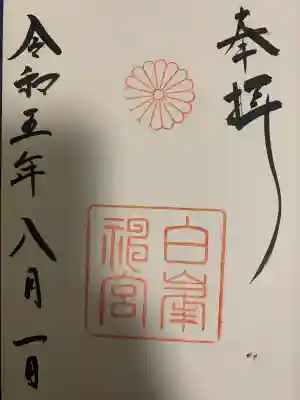 奉拝
白峯神宮
令和五年八月一日